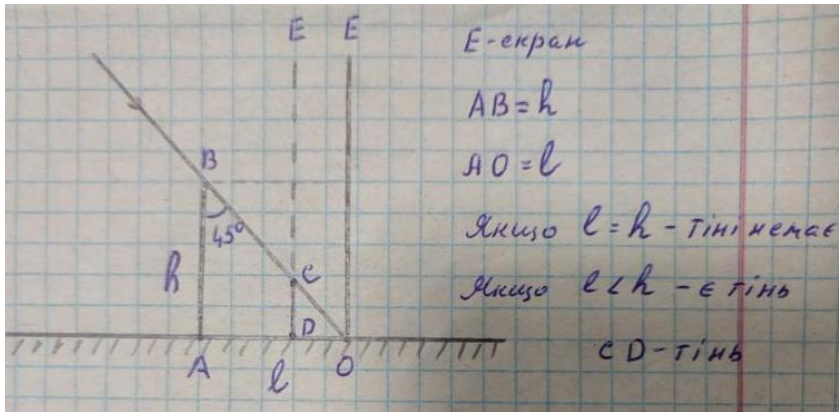 E E
B
45°
h
C
D
A
l
O
E-екран
AB=h
AO=l
Якщо l=h-тіні немає
Якщо l<h-є тінь
CD-тінь